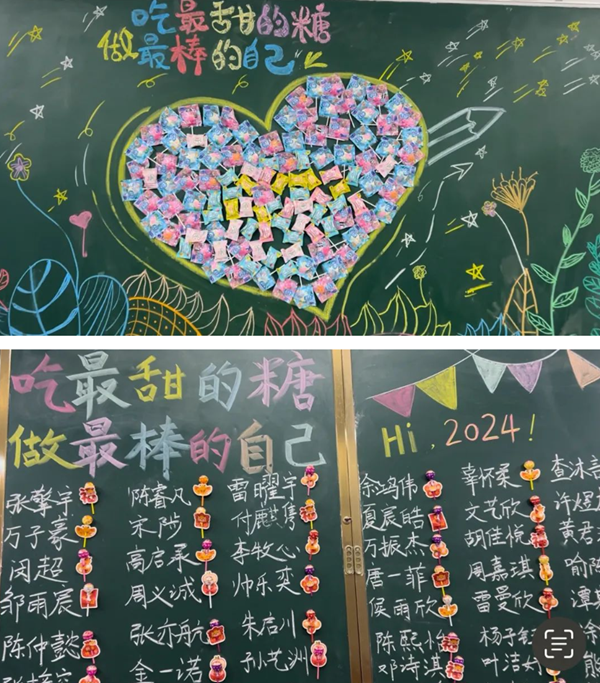 吃最甜的糖
做最棒的自己
吃最甜的糖
做最棒的自己
张擎宇 陈睿凡 雷曜宇
万子豪 宋陟 付麒隽
闵超 高启承 李牧心
邹雨展 周义诚 帅乐奕
陈仲懿 张亦航 朱启川
金一诺 孙艺洲
Hi, 2024!
余鸿伟 辜怀柔 查沐
夏宸皓 文艺欣 许煜
万振杰 胡佳悦 黄君
唐一菲 周嘉琪 喻
侯雨欣 雷曼欣 谭
陈熙怡 杨子
邓诗淇 叶洁 熊